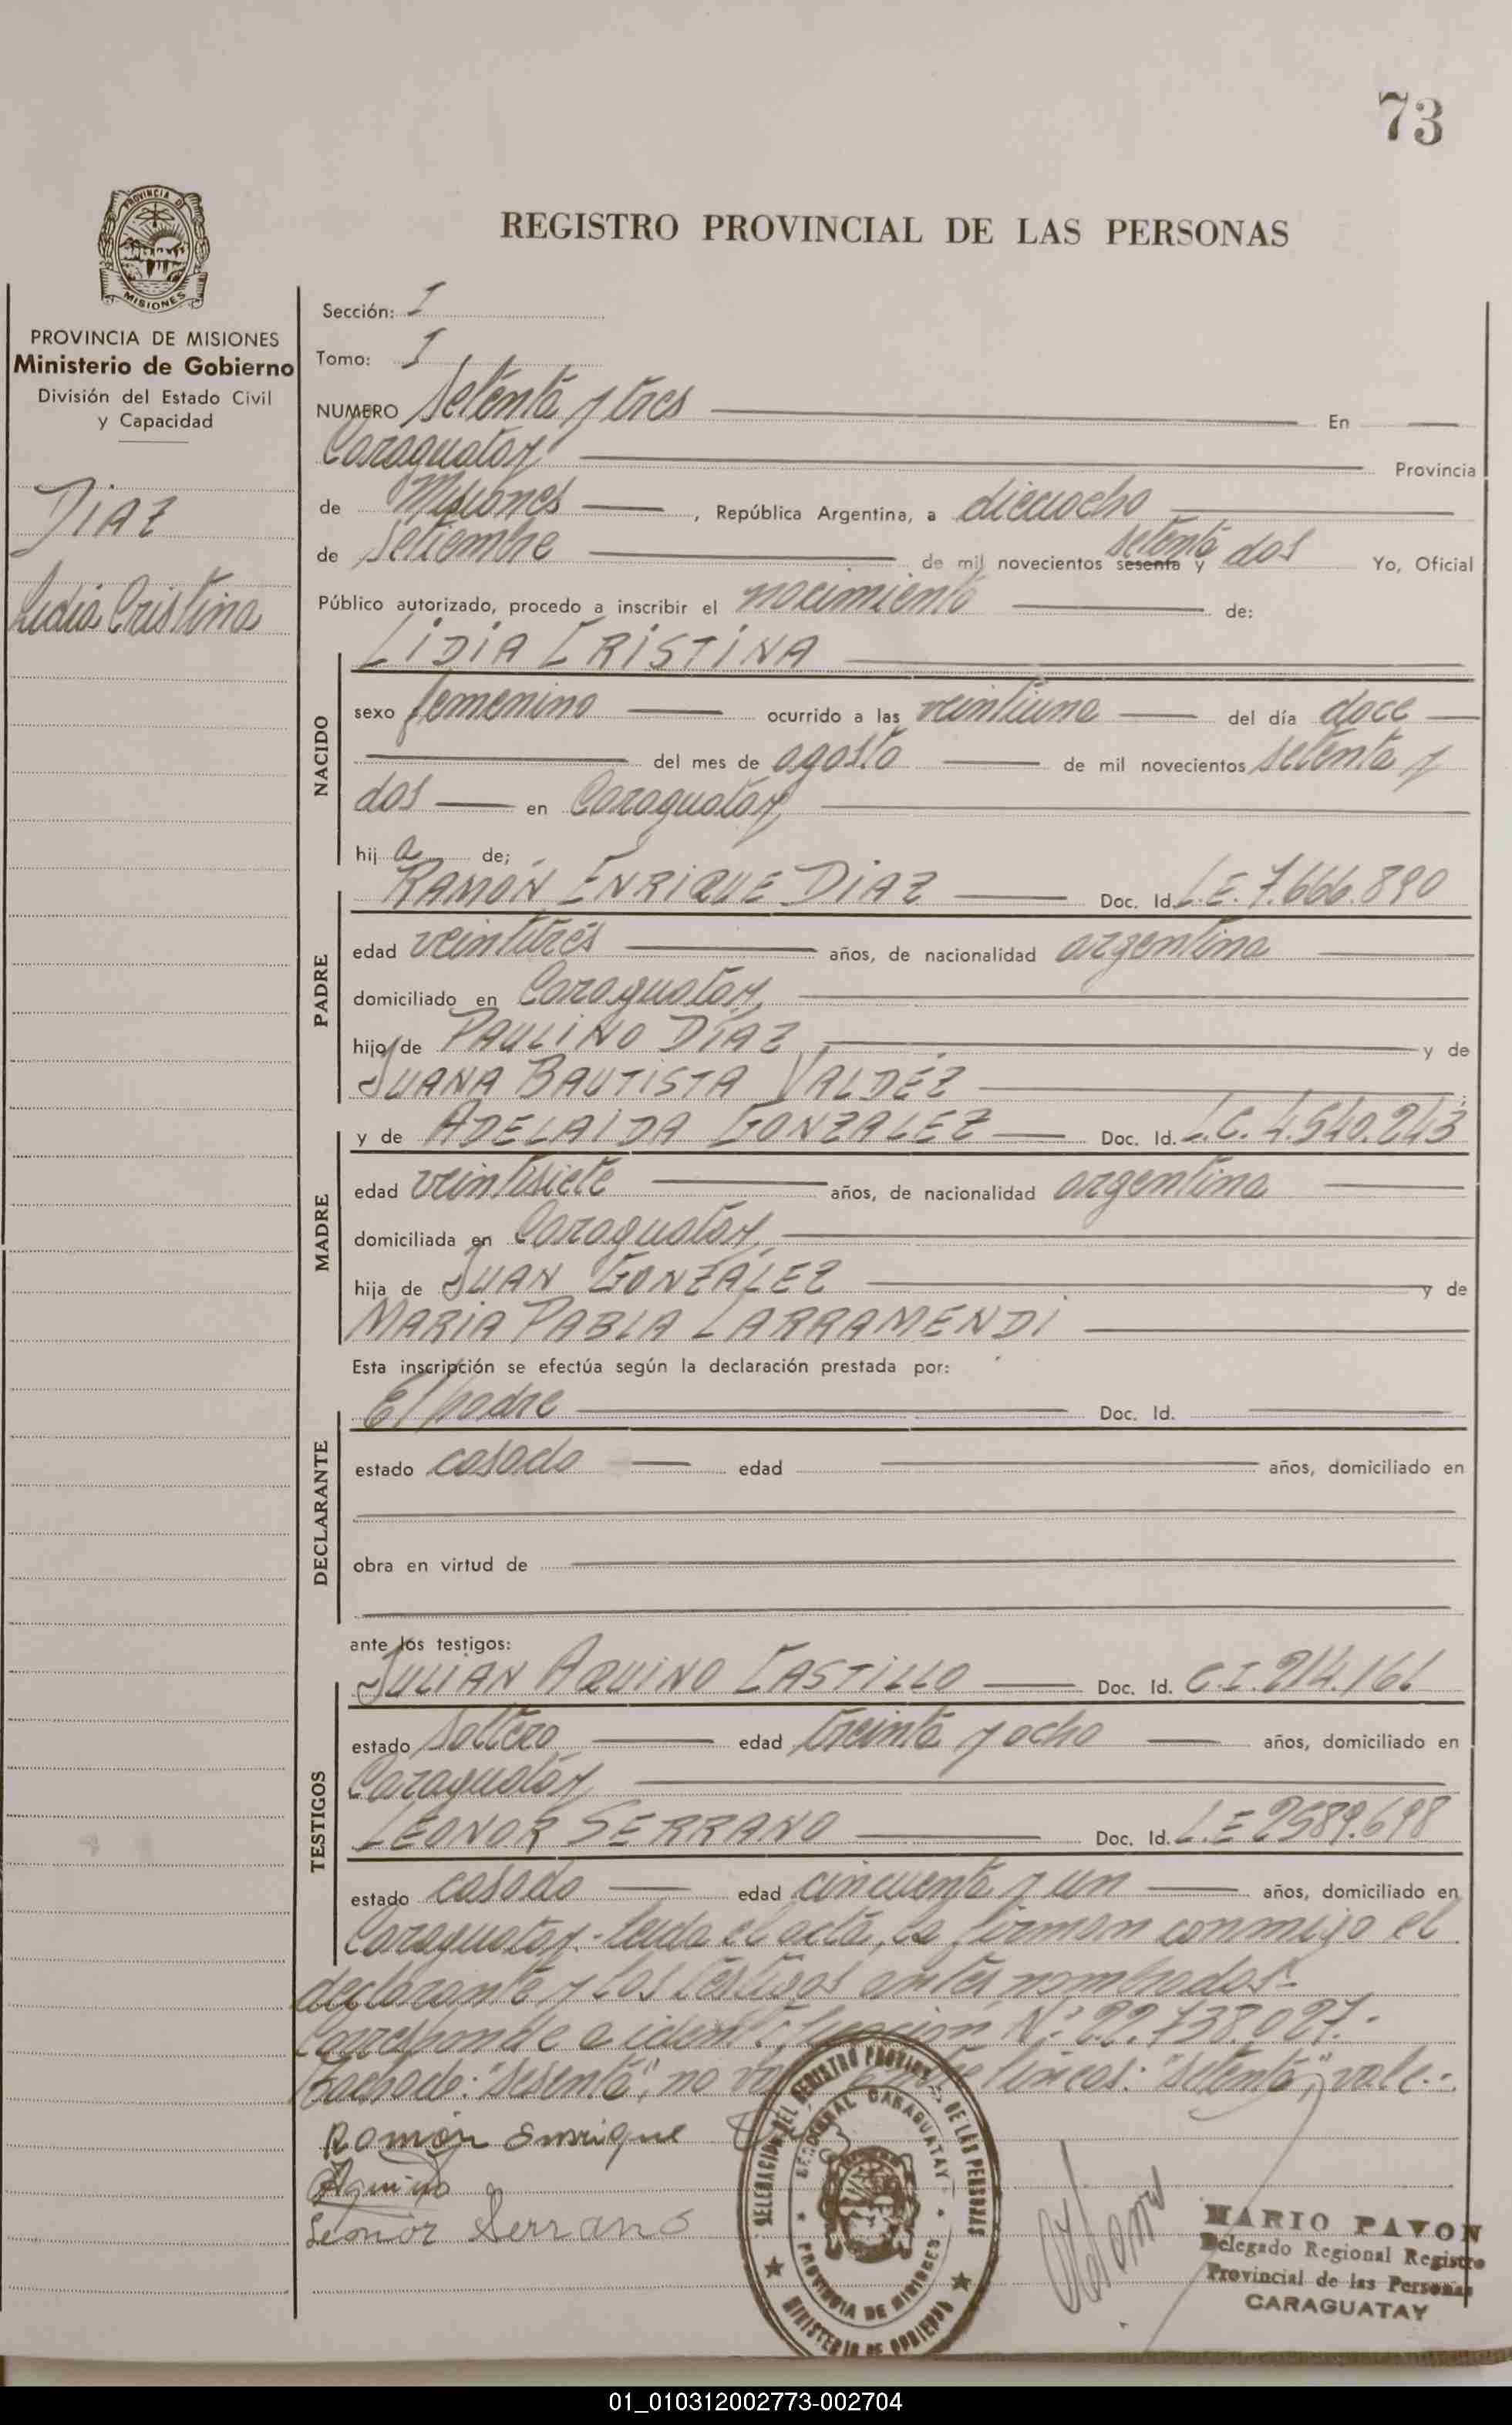 73
PROVINCIA DE
MISIONES
PROVINCIA DE MISIONES
Ministerio de Gobierno
División del Estado Civil
y Capacidad
DIAZ
Lidia Cristina
REGISTRO PROVINCIAL DE LAS PERSONAS
Sección: I
Tomo: I
NUMERO setenta y tres En
Caraguatay Provincia
de Misiones , República Argentina, a dieciocho
de setiembre de mil novecientos sesenta setenta y dos Yo, Oficial
Público autorizado, procedo a inscribir el nacimiento de:
LIDIA CRISTINA
NACIDO
sexo femenino ocurrido a las veintiuna del día doce
del mes de agosto de mil novecientos setenta y
dos en Caraguatay
hij a de;
RAMÓN ENRIQUE DIAZ Doc. Id. L.E. 7.666.890
PADRE
edad veintitrés años, de nacionalidad argentina
domiciliado en Caraguatay,
hijo de PAULINO DÍAZ y de
JUANA BAUTISTA VALDÉZ
y de ADELAIDA GONZALEZ Doc. Id. L.C. 4.540.243
MADRE
edad veintisiete años, de nacionalidad argentina
domiciliada en Caraguatay,
hija de JUAN GONZÁLEZ y de
MARIA PABLA LARRAMENDI
Esta inscripción se efectúa según la declaración prestada por:
El padre Doc. Id.
DECLARANTE
estado casado edad años, domiciliado en
obra en virtud de
ante los testigos:
JULIAN AQUINO CASTILLO Doc. Id. C.I. 214.161
TESTIGOS
estado soltero edad treinta y ocho años, domiciliado en
Caraguatay
LEONOR SERRANO Doc. Id. L.E 2589.698
estado casado edad cincuenta y un años, domiciliado en
Caraguatay.- leida el acta, la firman conmigo el
declarante y los testigos antes nombrados.-
Corresponde a identificación Nº 22.738.027.-
Tachado: "sesenta", no vale líneas: "setenta", vale.-
Ramón Enrique
Aquino
Leonor Serrano
DELEGACION DEL REGISTRO PROVINCIAL DE LAS PERSONAS
SECCIONAL CARAGUATAY
PROVINCIA DE MISIONES
MINISTERIO DE GOBIERNO
MARIO PAVON
Delegado Regional Registro
Provincial de las Personas
CARAGUATAY
01_010312002773-002704